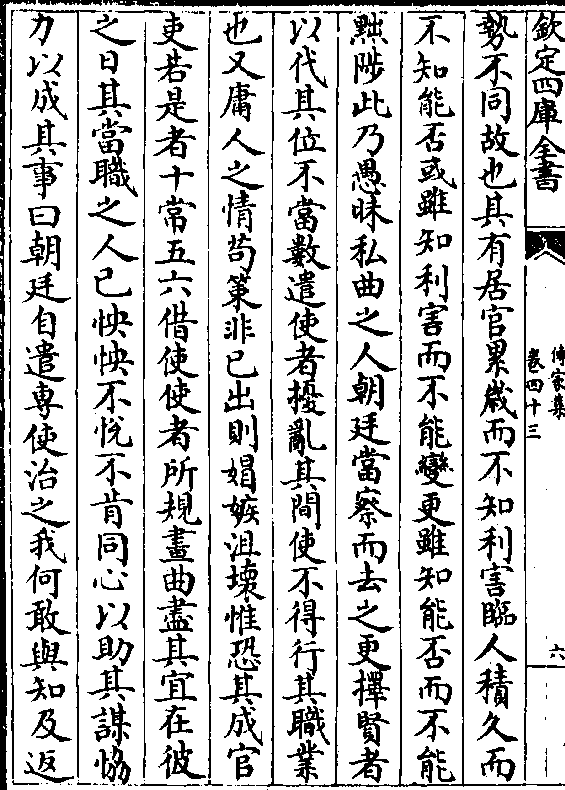 欽定四庫全書
傳家集
卷四十三
六
勢不同故也具有居官累歲而不知利害臨人積久而
不知能否或雖知利害而不能變更雖知能否而不能
黜陟此乃愚昧私曲之人朝廷當察而去之更擇賢者
以代其位不當數遣使者擾亂其間使不得行其職業
也又庸人之情苟策非己出則娼嫉沮壞惟恐其成官
吏若是者十常五六借使使者所規畫曲盡其宜在彼
之日其當職之人已怏怏不悅不肯同心以助其謀恊
力以成其事曰朝廷自遣専使治之我何敢與知及返